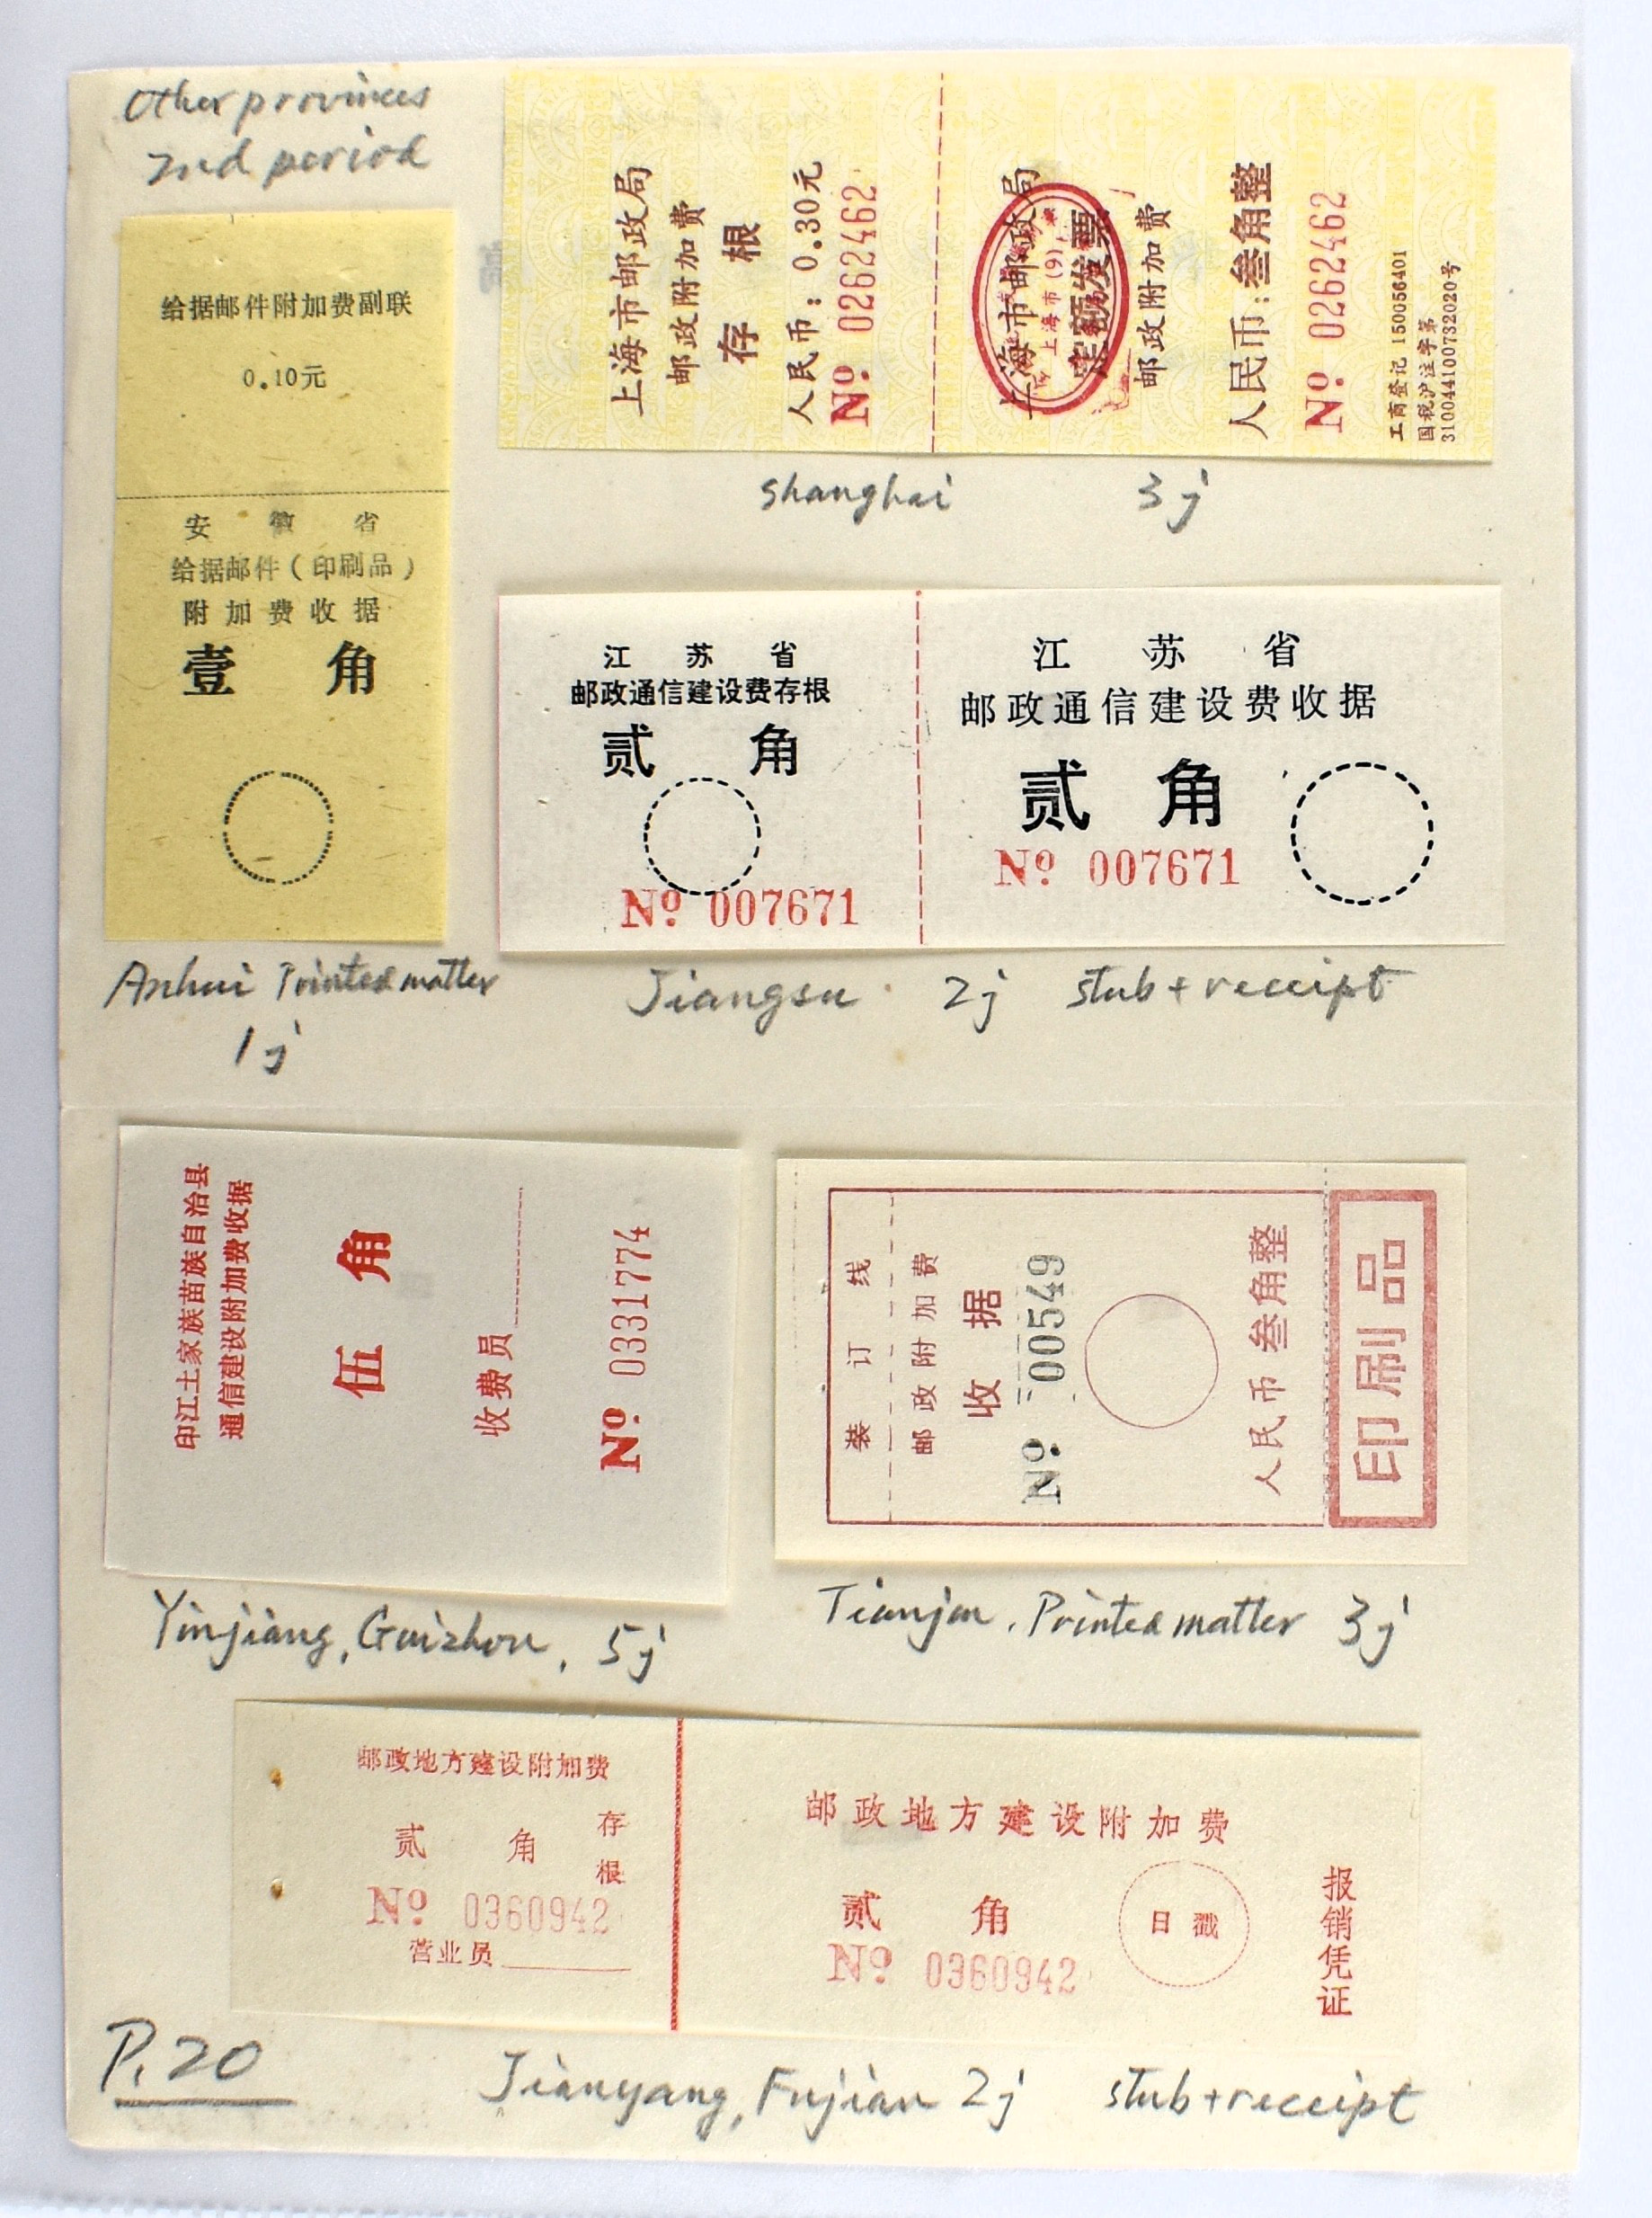 Other provinces
2nd period
给据邮件附加费副联
0.10元
安徽省
给据邮件(印刷品)
附加费收据
壹角
Anhui Printed matter
1j
上海市邮政局
邮政附加费
存根
人民币:0.30元
No. 0262462
上海市邮政局
定额发票
邮政附加费
人民币:叁角整
No. 0262462
工商登记 150056401
国税沪注字第
310044100732020号
上海市(9)
Shanghai 3j
江苏省
邮政通信建设费存根
贰角
No. 007671
江苏省
邮政通信建设费收据
贰角
No. 007671
Jiangsu 2j stub + receipt
印江土家族苗族自治县
通信建设附加费收据
伍角
收费员
No. 0331774
Yinjiang, Guizhou, 5j
装订线
邮政附加费
收据
No. 00549
人民币叁角整
印刷品
Tianjin, Printed matter 3j
邮政地方建设附加费
贰角
存根
No. 0360942
营业员
邮政地方建设附加费
贰角
No. 0360942
日戳
报销凭证
P.20
Jianyang, Fujian 2j stub + receipt